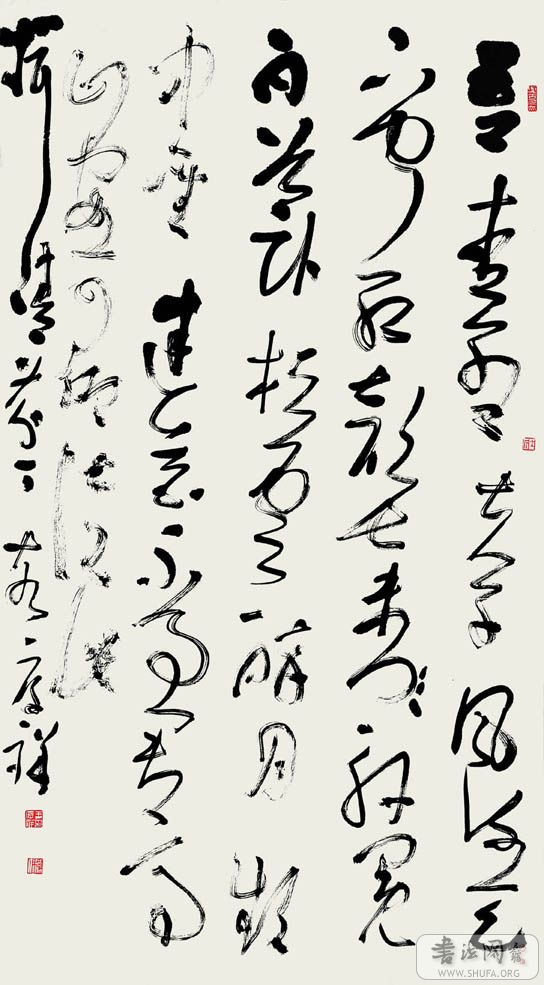 吾愛孟夫子風流天
下聞紅顏棄軒冕
白首臥松雲醉月頻
中聖迷花不事君高
山安可仰徒此
揖清芬
書法网
WWW.SHUFA.ORG